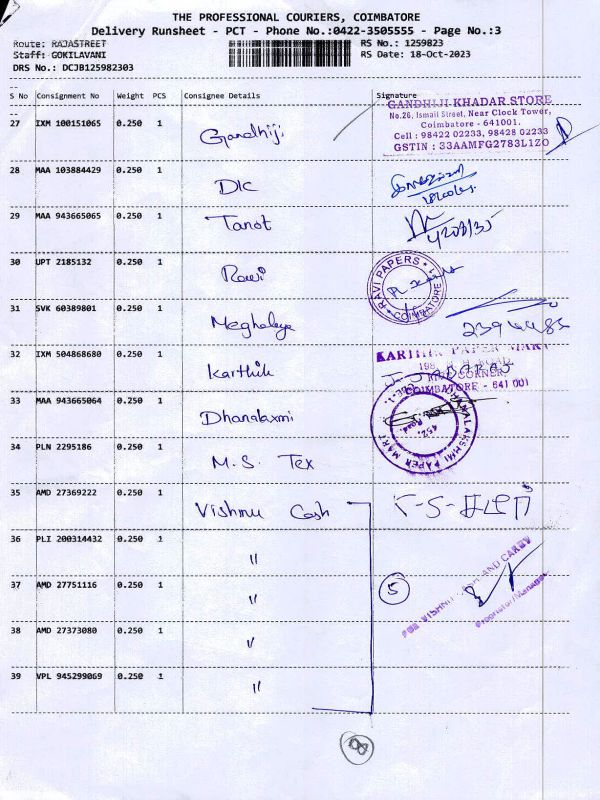 THE PROFESSIONAL COURIERS, COIMBATORE
Delivery Runsheet - PCT - Phone No.:0422-3505555 - Page No.:3
Route: RAJASTREET
Staff: GOKILAVANI
DRS No.: DCJB125982303
RS No.: 1259823
RS Date: 18-Oct-2023
S No Consignment No Weight PCS Consignee Details Signature
27 IXM 100151065 0.250 1 Gandhiji
GANDHIJI KHADAR STORE
No.26, Ismail Street, Near Clock Tower,
Coimbatore - 641001.
Cell : 98422 02233, 98428 02233
GSTIN : 33AAMFG2783L1ZO
28 MAA 103884429 0.250 1 DIC
29 MAA 943665065 0.250 1 Tanot
30 UPT 2185132 0.250 1 Ravi
RAVI PAPERS
COIMBATORE
31 SVK 60389801 0.250 1 Meghalaya
32 IXM 504868680 0.250 1 Karthik
KARTHIK PAPER MART
COIMBATORE - 641 001
33 MAA 943665064 0.250 1 Dhanalaxmi
DHANALAKSHMI PAPER MART
452,
34 PLN 2295186 0.250 1 M.S. Tex
35 AMD 27369222 0.250 1 Vishnu Cash
36 PLI 200314432 0.250 1 "
37 AMD 27751116 0.250 1 "
5
38 AMD 27373080 0.250 1 "
39 VPL 945299069 0.250 1 "
FOR VISHNU CASH AND CARRY
Proprietor/Manager